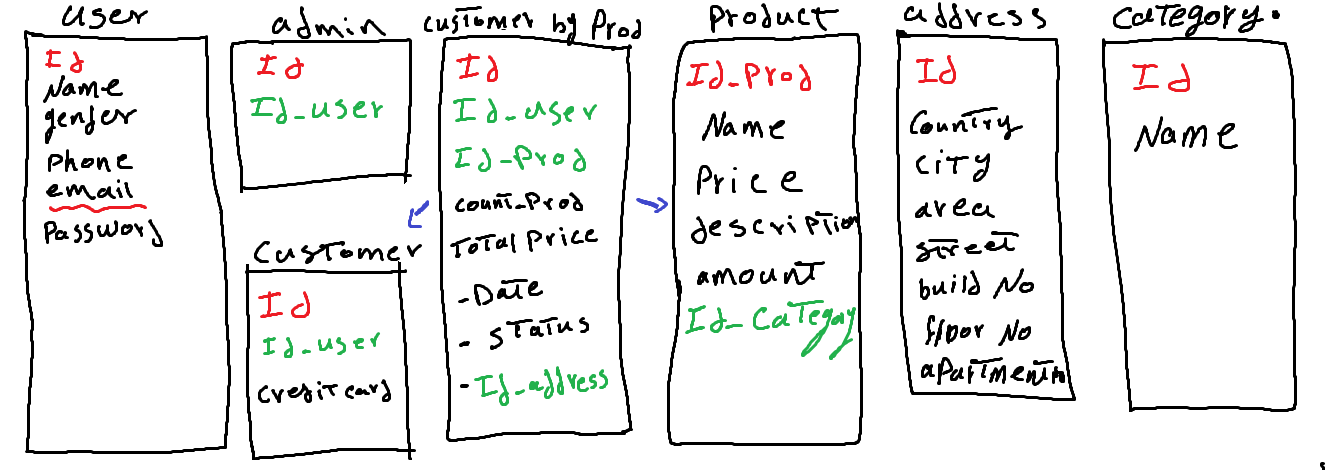 user
Id
Name
gender
Phone
email
Password
admin
Id
Id_user
Customer
Id
Id_user
credit card
customer by Prod
Id
Id_user
Id_Prod
count_Prod
Total Price
-Date
- Status
-Id_address
Product
Id_Prod
Name
Price
description
amount
Id_Categay
address
Id
Country
City
area
street
build No
floor No
category.
Id
Name